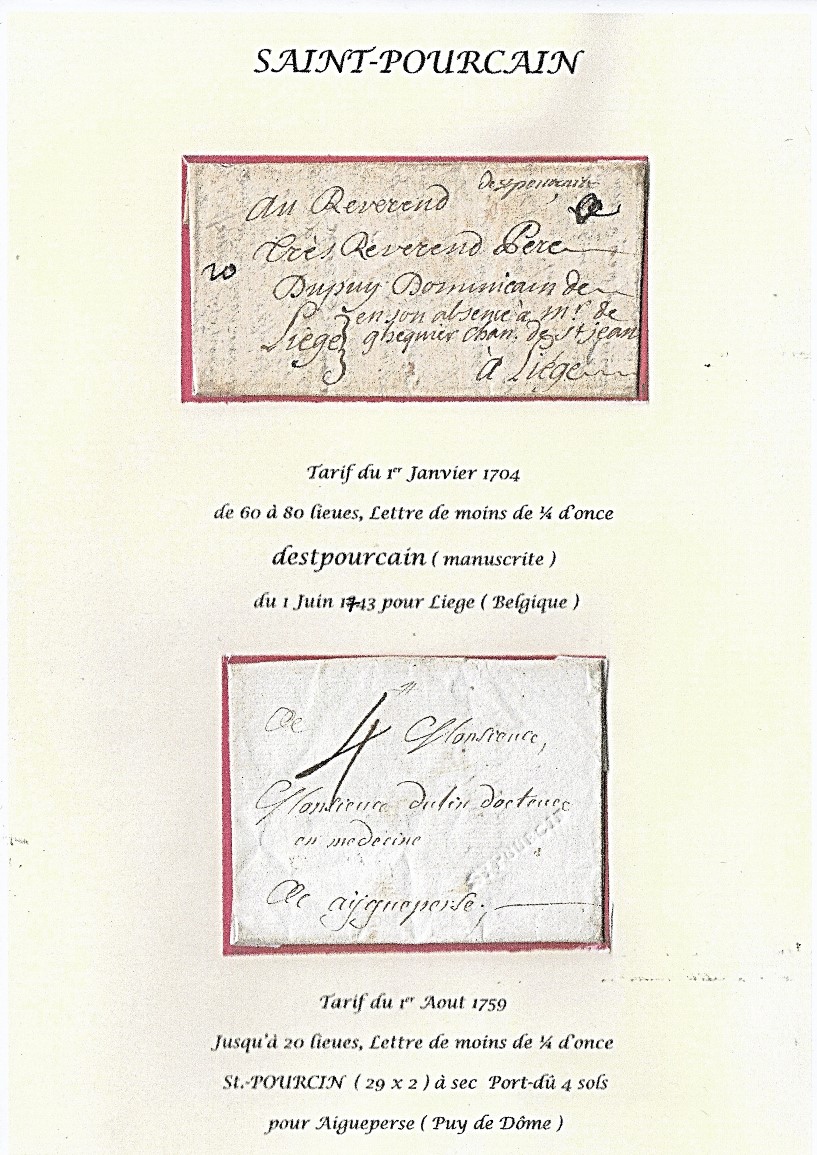 SAINT-POURCAIN
destpourcain
Au Reverend
Très Réverend Pere
20
Dupuy Dominicain de
en son absence à mr. de
Liège ghequier chan. de st jean
à Liége
Tarif du 1er Janvier 1704
de 60 à 80 lieues, Lettre de moins de ¼ d'once
destpourcain ( manuscrite )
du 1 Juin 1743 pour Liege ( Belgique )
4
Monsieur,
Monsieur dulin docteur
en medecine
ST POURCIN
aÿgueperse.
Tarif du 1er Aout 1759
Jusqu'à 20 lieues, Lettre de moins de ¼ d'once
St.-POURCIN ( 29 x 2 ) à sec Port-dû 4 sols
pour Aigueperse ( Puy de Dôme )